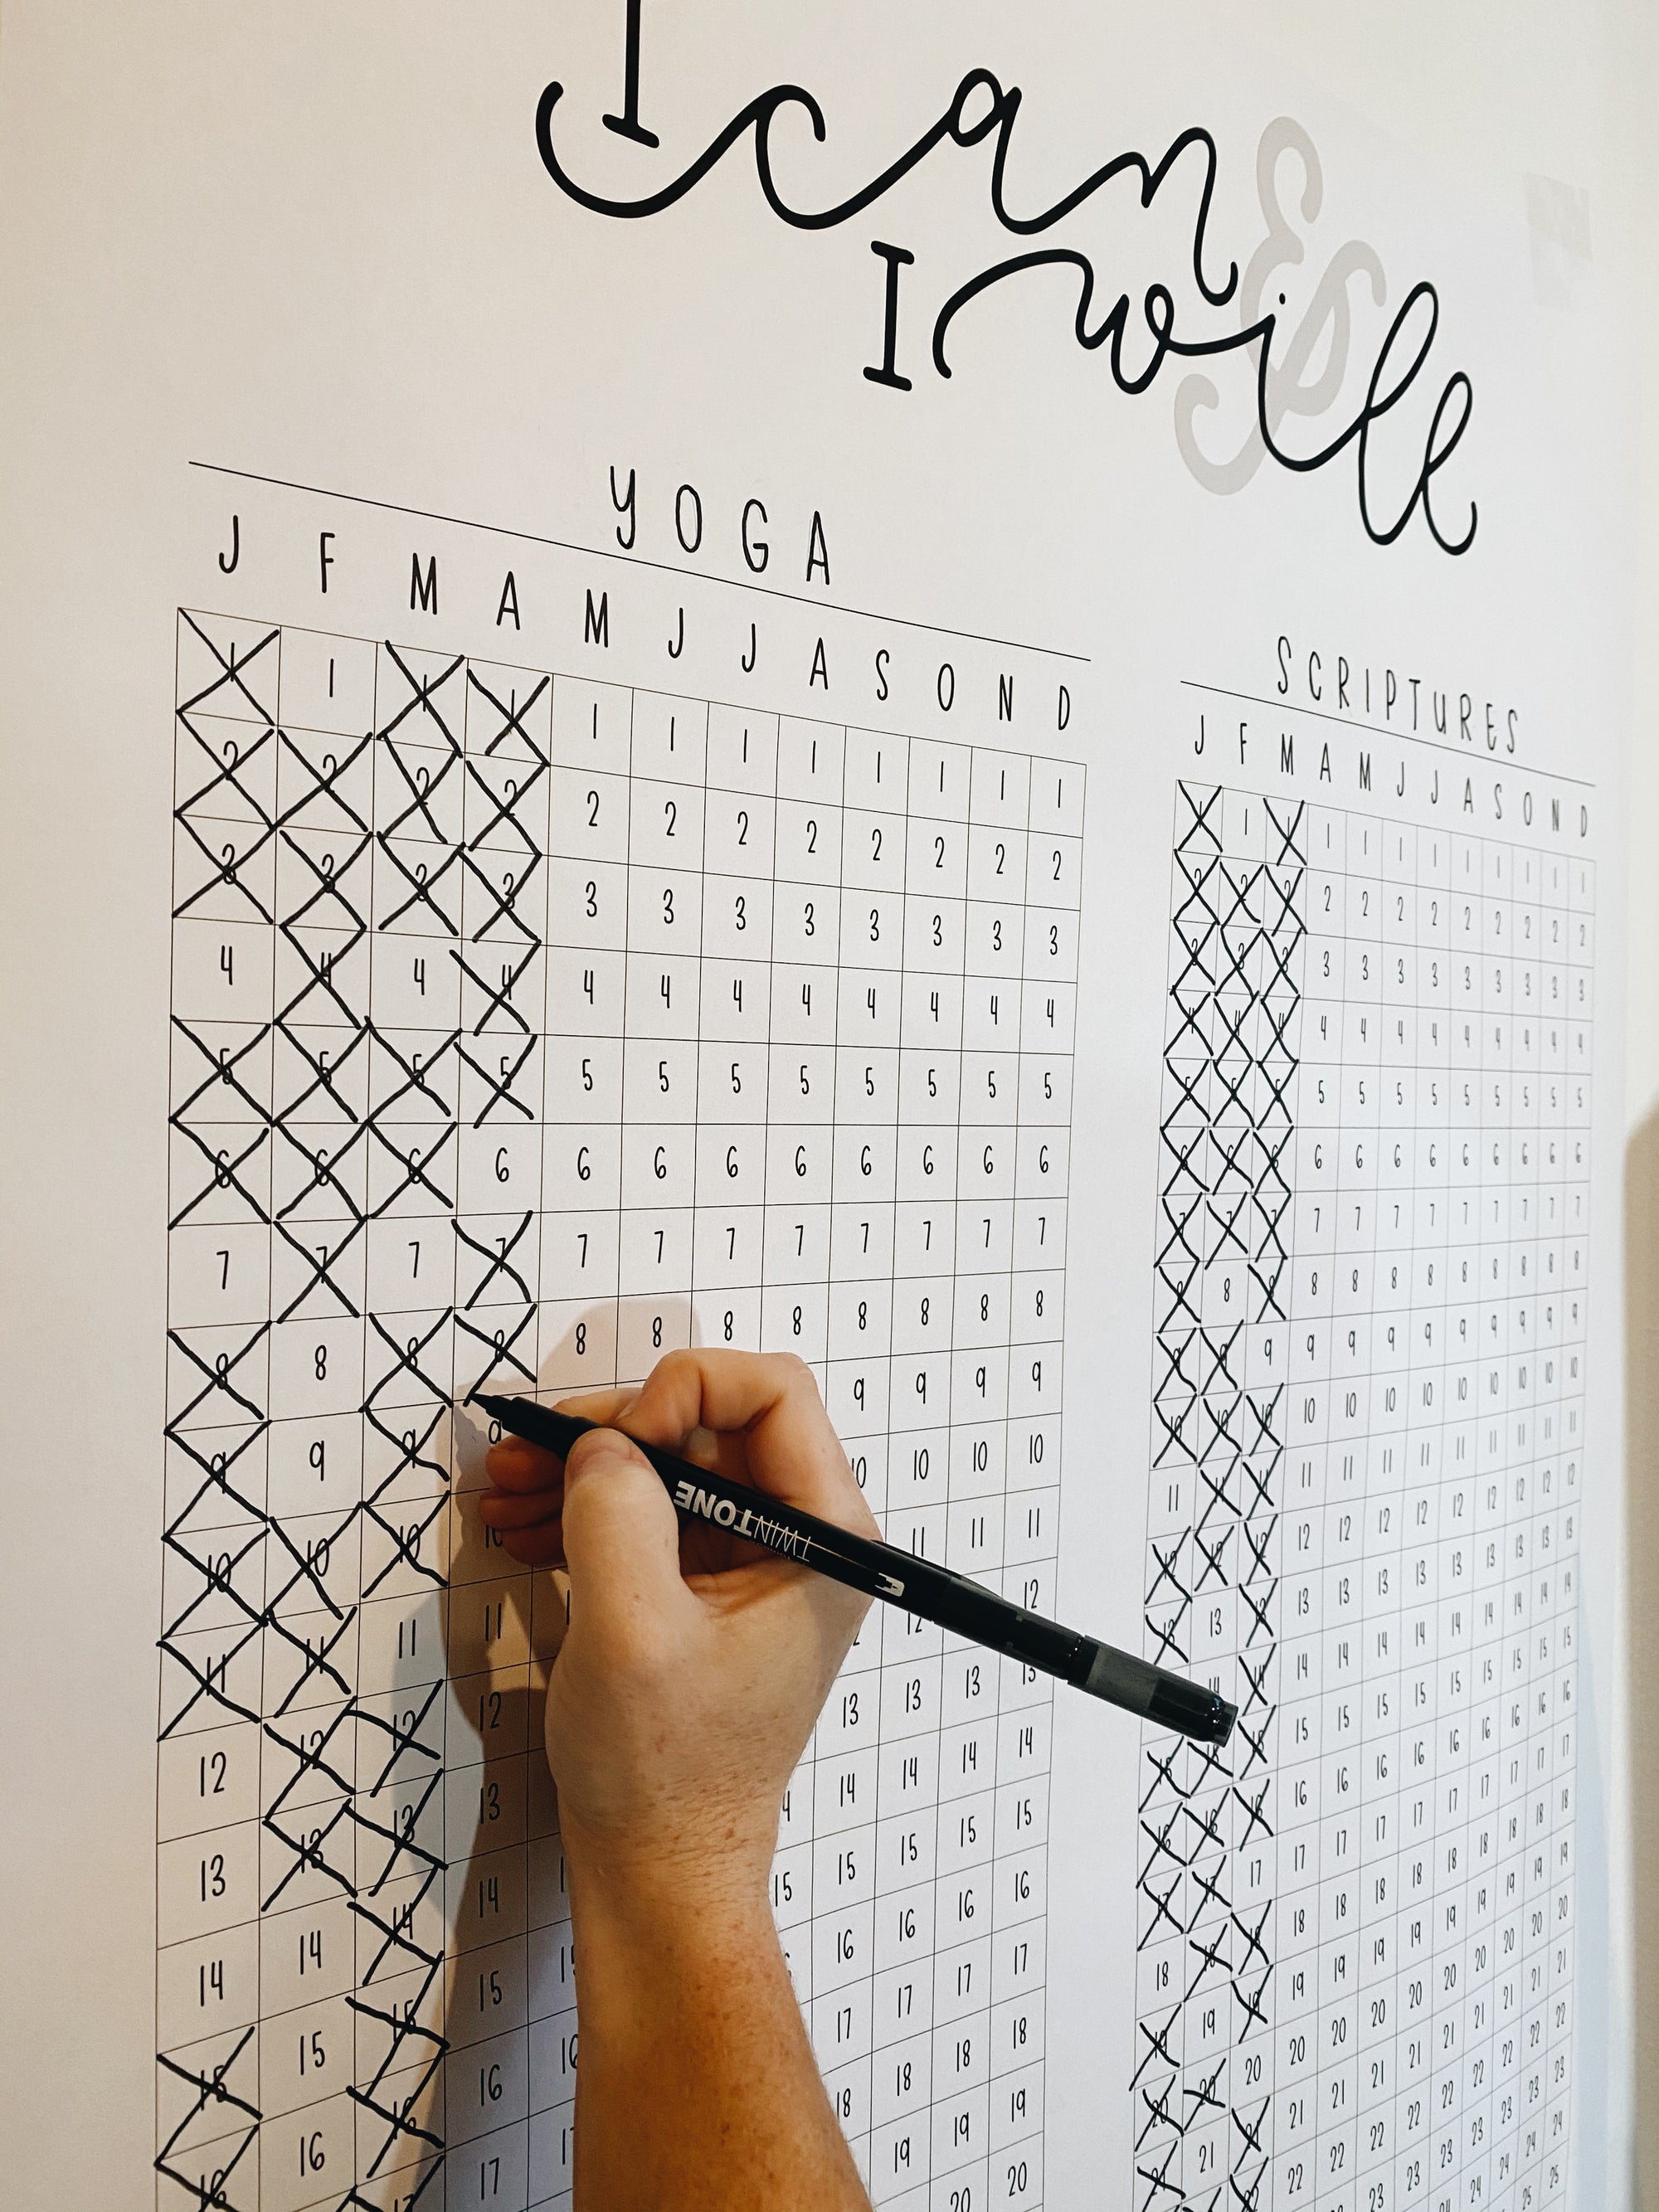 I can
&
I will
YOGA
J F M A M J J A S O N D
1 1 1 1 1 1 1 1 1 1 1 1
2 2 2 2 2 2 2 2 2 2 2 2
3 3 3 3 3 3 3 3 3 3 3 3
4 4 4 4 4 4 4 4 4 4 4 4
5 5 5 5 5 5 5 5 5 5 5 5
6 6 6 6 6 6 6 6 6 6 6 6
7 7 7 7 7 7 7 7 7 7 7 7
8 8 8 8 8 8 8 8 8 8 8 8
9 9 9 9 9 9 9 9
10 10 10 10 10 10 10
11 11 11 11 11 11 11
12 12 12 12 12 12
13 13 13 13 13 13 13
14 14 14 14 14 14 14
15 15 15 15 15 15 15 15
16 16 16 16 16 16 16
17 17 17 17 17
18 18 18 18
19 19 19
20 20
SCRIPTURES
J F M A M J J A S O N D
1 1 1 1 1 1 1 1 1 1 1 1
2 2 2 2 2 2 2 2 2 2 2 2
3 3 3 3 3 3 3 3 3 3 3 3
4 4 4 4 4 4 4 4 4 4 4 4
5 5 5 5 5 5 5 5 5 5 5 5
6 6 6 6 6 6 6 6 6 6 6 6
7 7 7 7 7 7 7 7 7 7 7 7
8 8 8 8 8 8 8 8 8 8 8 8
9 9 9 9 9 9 9 9 9 9 9 9
10 10 10 10 10 10 10 10 10 10 10 10
11 11 11 11 11 11 11 11 11 11 11 11
12 12 12 12 12 12 12 12 12 12 12 12
13 13 13 13 13 13 13 13 13 13 13 13
14 14 14 14 14 14 14 14 14 14 14
15 15 15 15 15 15 15 15 15 15 15 15
16 16 16 16 16 16 16 16 16 16 16 16
17 17 17 17 17 17 17 17 17 17 17 17
18 18 18 18 18 18 18 18 18 18 18 18
19 19 19 19 19 19 19 19 19 19 19 19
20 20 20 20 20 20 20 20 20 20 20 20
21 21 21 21 21 21 21 21 21 21 21 21
22 22 22 22 22 22 22 22 22
23 23 23 23 23 23
24 24 24 24
25 25
TWINTONE